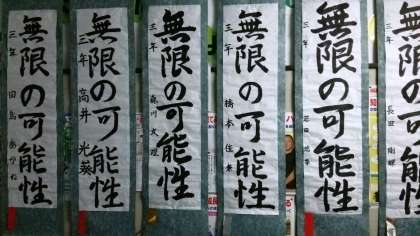 無限の可能性
三年
無限の可能性
三年 高井
無限の可能性
三年 森川
無限の可能性
三年 橋本 佳奈
無限の可能性
三年
無限の可能性
三年 長田